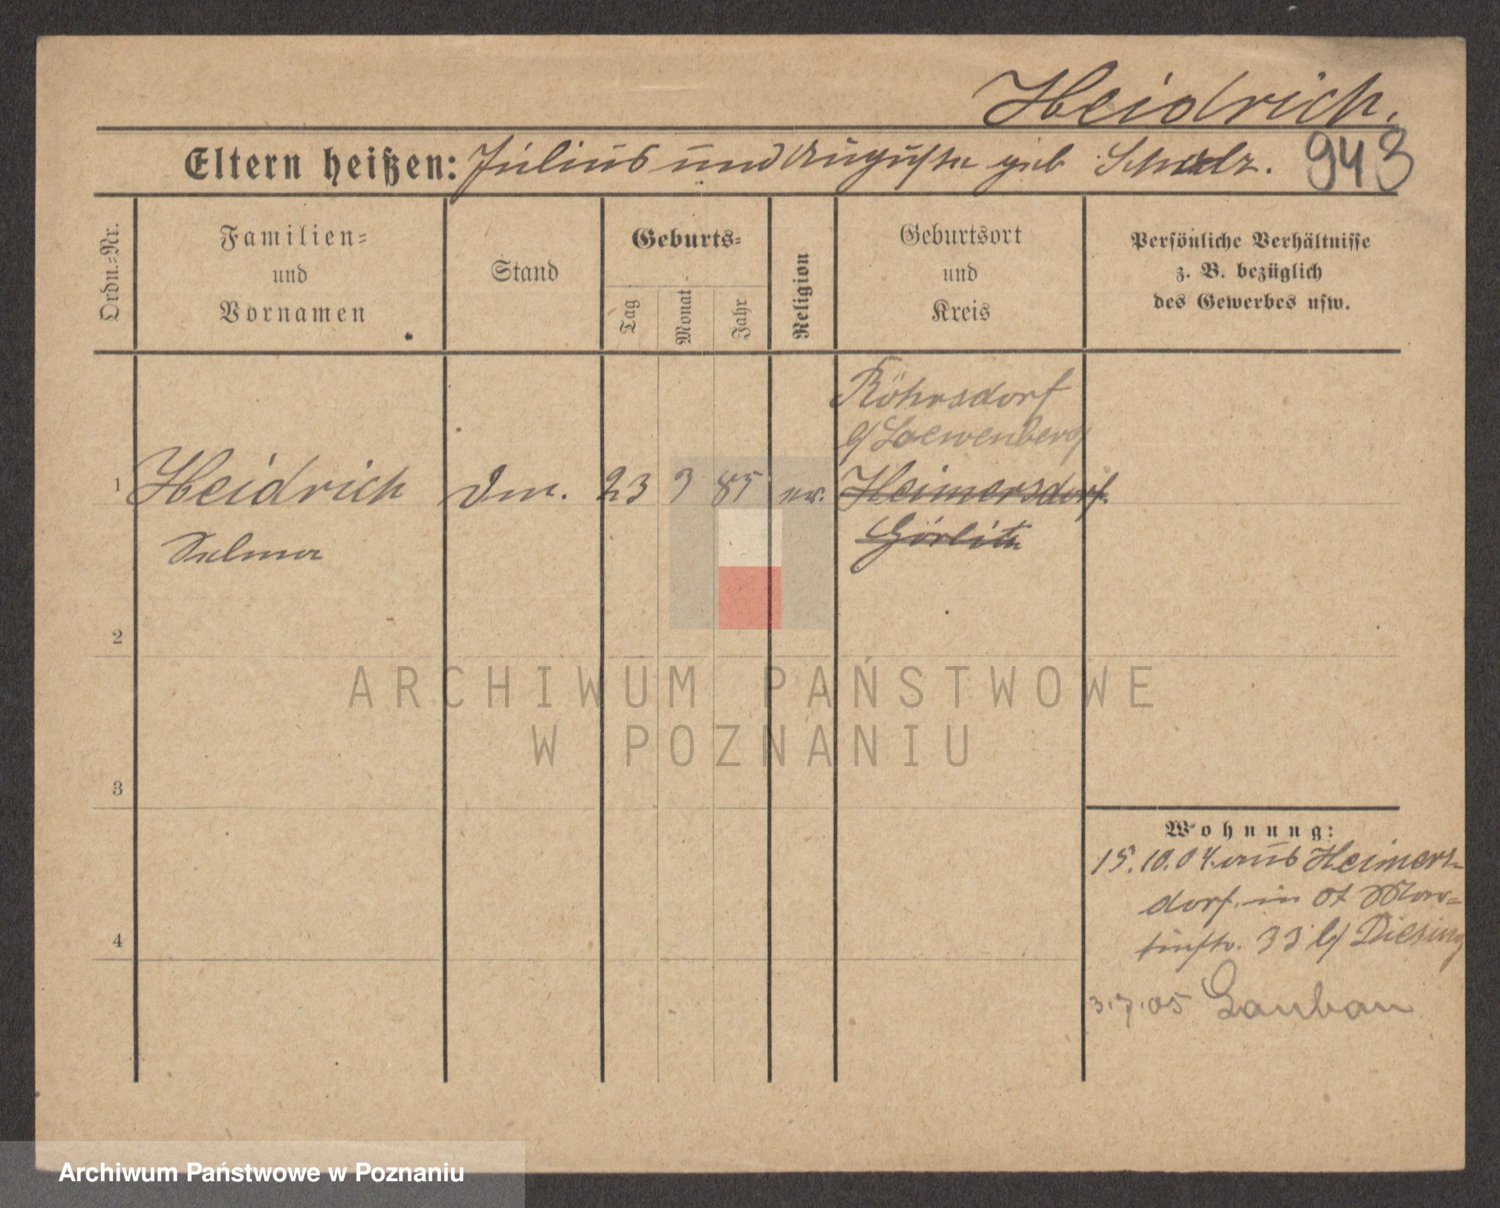 Heidrich.
Eltern heißen: Julius und Auguste geb Scholz. 943
Ordn.-Nr.
Familien-
und
Vornamen
Stand
Geburts-
Tag
Monat
Jahr
Religion
Geburtsort
und
Kreis
Persönliche Verhältnisse
z. B. bezüglich
des Gewerbes usw.
Röhrsdorf
Loewenberg
1 Heidrich 23 85 ev. Heimersdorf
Selma Görlitz
2
3
4
Wohnung:
15.10.04 aus Heimers-
dorf in Mar-
tinstr. 33 b/ Diesing
3.7.05 Lauban
ARCHIWUM PAŃSTWOWE
W POZNANIU
Archiwum Państwowe w Poznaniu